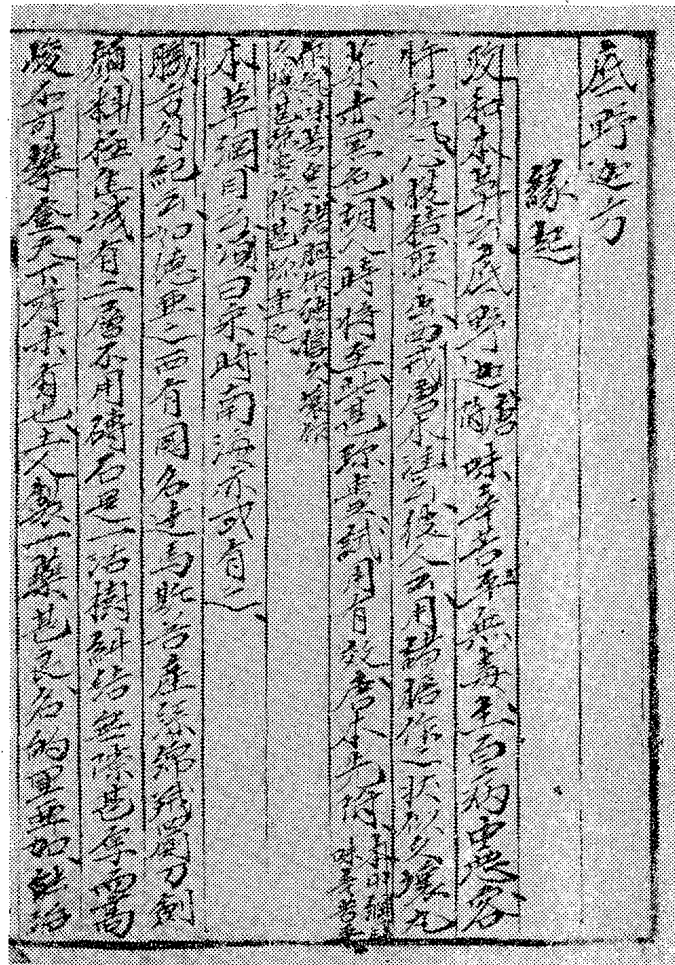 底野迦方
緣起
政和本草云底野迦味辛苦平無毒主百病中惡客
忤邪氣心腹積聚出西戎唐本注云彼人云用諸膽作之狀似久壞丸
藥赤黑色胡人時將至此甚珍貴試用有效唐本先附
本草綱目云頌曰宋時南海亦或有之
職方外紀云如德亞之西有國名達馬斯谷產絲綿絨罽刀劍
顏料極佳城有二層不用磚石是一活樹糾結無隙甚厚而高
峻不可攀登天下所未有也土人製一藥甚良名的里亞加能治